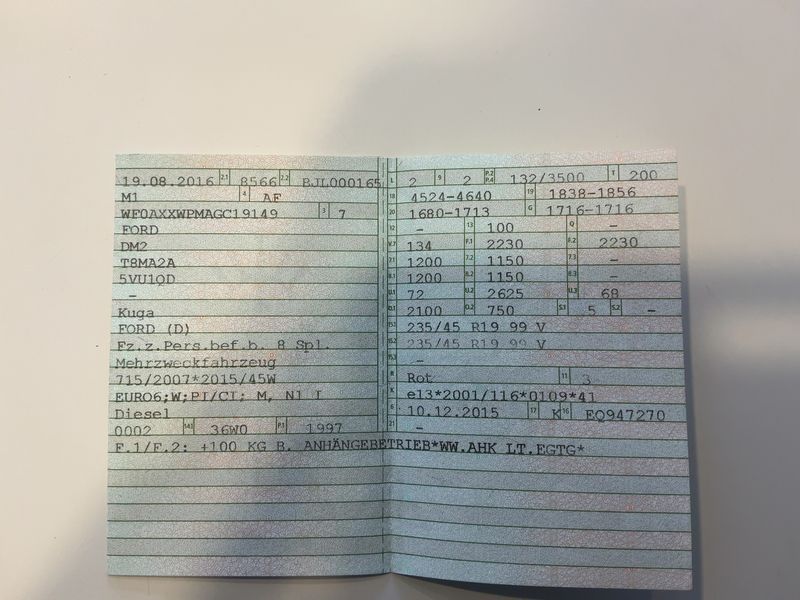 19.08.2016 2.1 8566 2.2 BJL000165
M1 4 AF
WF0AXXWPMAGC19149 3 7
FORD
DM2
T8MA2A
5VU1QD
–
Kuga
FORD (D)
Fz.z.Pers.bef.b. 8 Spl.
Mehrzweckfahrzeug
715/2007*2015/45W
EURO6;W;PI/CI; M, N1 I
Diesel
0002 14.1 36W0 P.1 1997
L 2 9 2 P.2 P.4 132/3500 T 200
18 4524-4640 19 1838-1856
20 1680-1713 G 1716-1716
12 – 13 100 Q –
V.7 134 F.1 2230 F.2 2230
7.1 1200 7.2 1150 7.3 –
8.1 1200 8.2 1150 8.3 –
U.1 72 U.2 2625 U.3 68
O.1 2100 O.2 750 S.1 5 S.2 –
15.1 235/45 R19 99 V
15.2 235/45 R19 99 V
15.3 –
R Rot 11 3
K e13*2001/116*0109*41
6 10.12.2015 17 K 16 EQ947270
21 –
F.1/F.2: +100 KG B. ANHÄNGEBETRIEB*WW.AHK LT.EGTG*